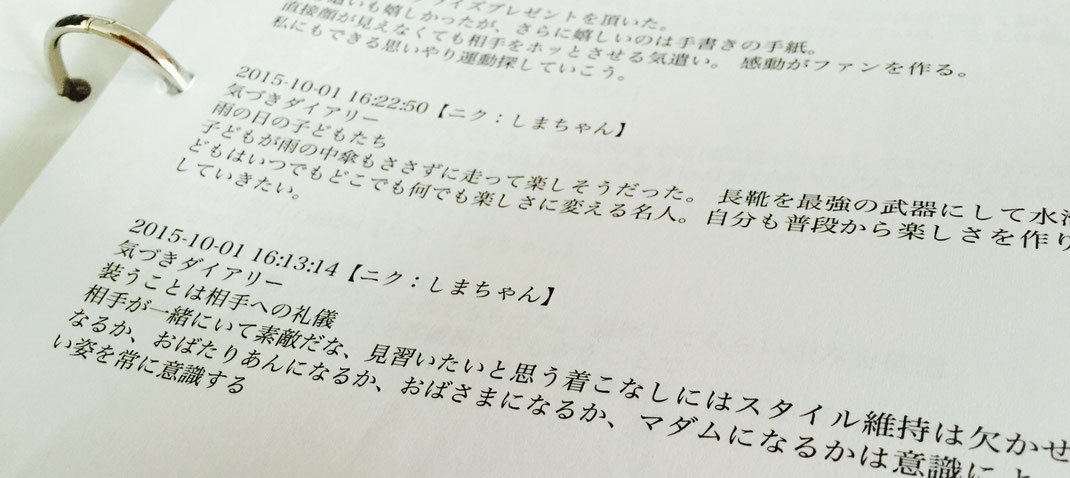 ライズプレゼントを頂いた。
も嬉しかったが、さらに嬉しいのは手書きの手紙。
直接顔が見えなくても相手をホッとさせる気遣い。 感動がファンを作る。
私にもできる思いやり運動探していこう。
2015-10-01 16:22:50【ニク：しまちゃん】
気づきダイアリー
雨の日の子どもたち
子どもが雨の中傘もささずに走って楽しそうだった。 長靴を最強の武器にして水
どもはいつでもどこでも何でも楽しさに変える名人。自分も普段から楽しさを作り
していきたい。
2015-10-01 16:13:14【ニク：しまちゃん】
気づきダイアリー
装うことは相手への礼儀
相手が一緒にいて素敵だな、見習いたいと思う着こなしにはスタイル維持は欠かせ
なるか、おばたりあんになるか、おばさまになるか、マダムになるかは意識によ
い姿を常に意識する